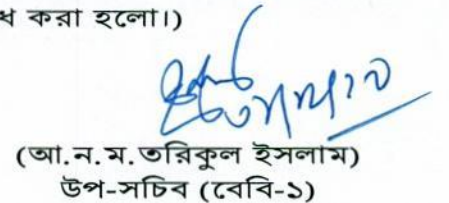 ধ করা হলো।)
(আ.ন.ম.তরিকুল ইসলাম)
উপ-সচিব (বেবি-১)